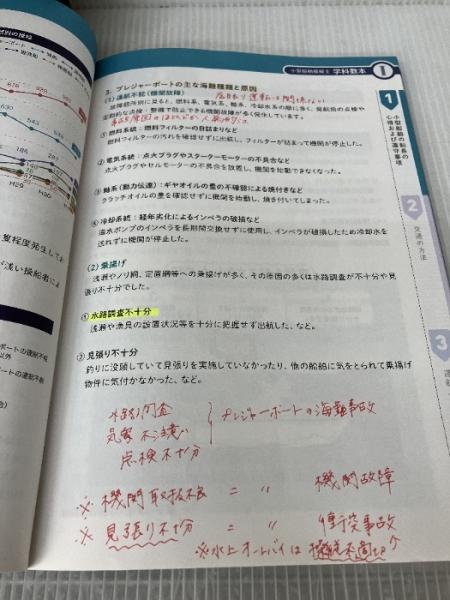 小型船舶操縦士 学科教本 I
3. プレジャーボートの主な海難種類と原因
(1) 運航不能(機関故障)
見張り、運転は関係ない
故障箇所別に見ると、燃料系、電気系、軸系、冷却水系の順に多く、発航前の点検や
定期的な点検・整備で防止できる機関故障が多く発生しています。
事故原因のほとんどが人為的ミス
① 燃料系統:燃料フィルターの目詰まりなど
燃料フィルターの汚れを確認せずに出航し、フィルターが詰まって機関が停止した。
② 電気系統:点火プラグやスターターモーターの不具合など
点火プラグやセルモーターの不具合を放置し、機関を始動できなくなった。
③ 軸系(動力伝達):ギヤオイルの量の不確認による焼付きなど
クラッチオイルの量を確認せずに機関を始動し、焼き付いてしまった。
④ 冷却系統:経年劣化によるインペラの破損など
海水ポンプのインペラを長期間交換せずに使用し、インペラが破損したため冷却水を
送れずに機関が停止した。
(2) 乗揚げ
浅瀬やノリ網、定置網等への乗揚げが多く、その原因の多くは水路調査が不十分や見
張り不十分でした。
① 水路調査不十分
浅瀬や漁具の設置状況等を十分に把握せず出航した、など。
② 見張り不十分
釣りに没頭していて見張りを実施していなかったり、他の船舶に気をとられて乗揚げ
物件に気付かなかった、など。
水路調査
気象不注意 プレジャーボートの海難事故
点検不十分
※ 機関取扱不良 = 〃 機関故障
※ 見張り不十分 = 〃 衝突事故
※水上オートバイは操縦不適切
1
小型船舶の船長の
心得および遵守事項
2
交通の方法
3
運
度程度発生してお
が浅い操船者によ
ボートの運航不能
以外
ボートの運航不能
H29
H30